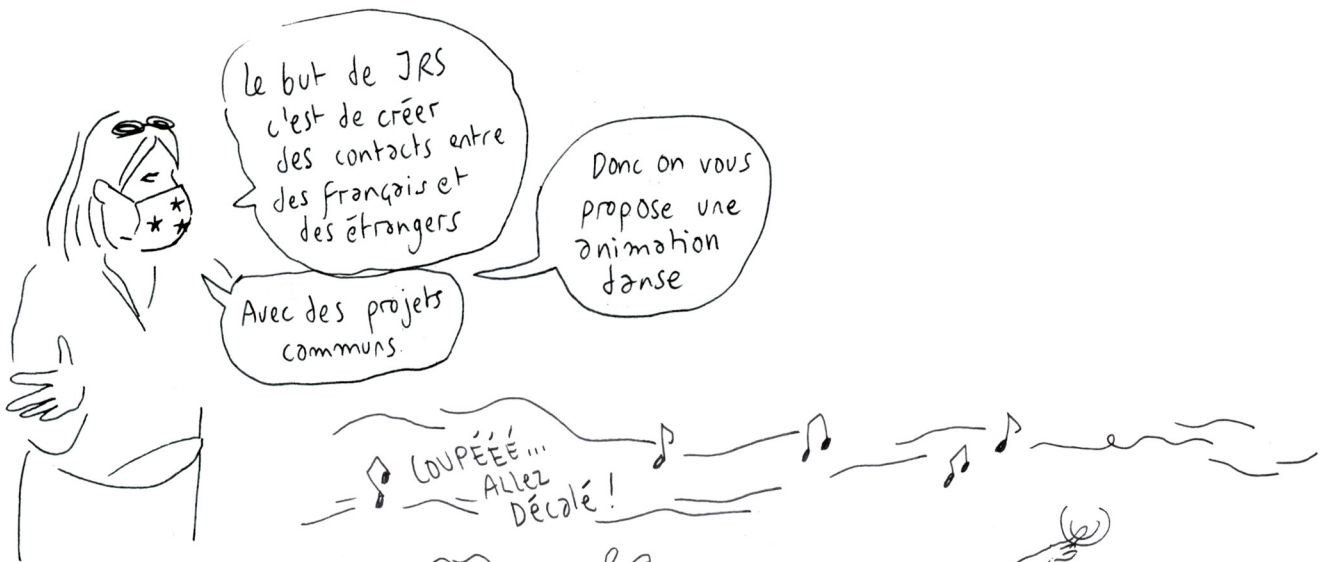 Le but de JRS
c'est de créer
des contacts entre
des français et
des étrangers
Avec des projets
communs.
Donc on vous
propose une
animation
danse
COUPÉÉÉ...
ALLEZ
Décalé !